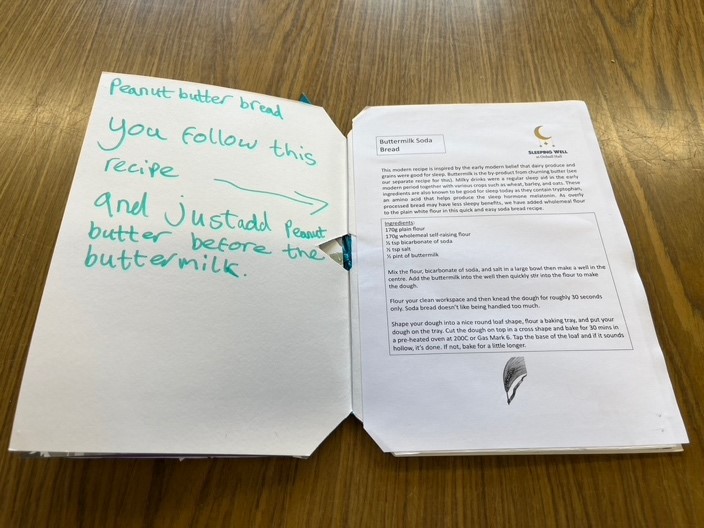 Peanut butter bread
you follow this
recipe
and just add Peanut
butter before the
buttermilk.
Buttermilk Soda
Bread
SLEEPING WELL
at Ordsall Hall
This modern recipe is inspired by the early modern belief that dairy produce and
grains were good for sleep. Buttermilk is the by-product from churning butter (see
our separate recipe for this). Milky drinks were a regular sleep aid in the early
modern period together with various crops such as wheat, barley, and oats. These
ingredients are also known to be good for sleep today as they contain tryptophan,
an amino that helps produce the sleep hormone melatonin. As overly
processed bread may have less sleepy benefits, we have added wholemeal flour
to the plain white flour in this quick and easy soda bread recipe.
Ingredients:
170g plain flour
170g wholemeal self-raising flour
½ tsp bicarbonate of soda
½ tsp salt
½ pint of buttermilk
Mix the flour, bicarbonate of soda, and salt in a large bowl then make a well in the
centre. Add the buttermilk into the well then quickly stir into the flour to make
the dough.
Flour your clean workspace and then knead the dough for roughly 30 seconds
only. Soda bread doesn't like being handled too much.
Shape your dough into a nice round loaf shape, flour a baking tray, and put your
dough on the tray. Cut the dough on top in a cross shape and bake for 30 mins in
a pre-heated oven at 200C or Gas Mark 6. Tap the base of the loaf and if it sounds
hollow, it's done. If not, bake for a little longer.